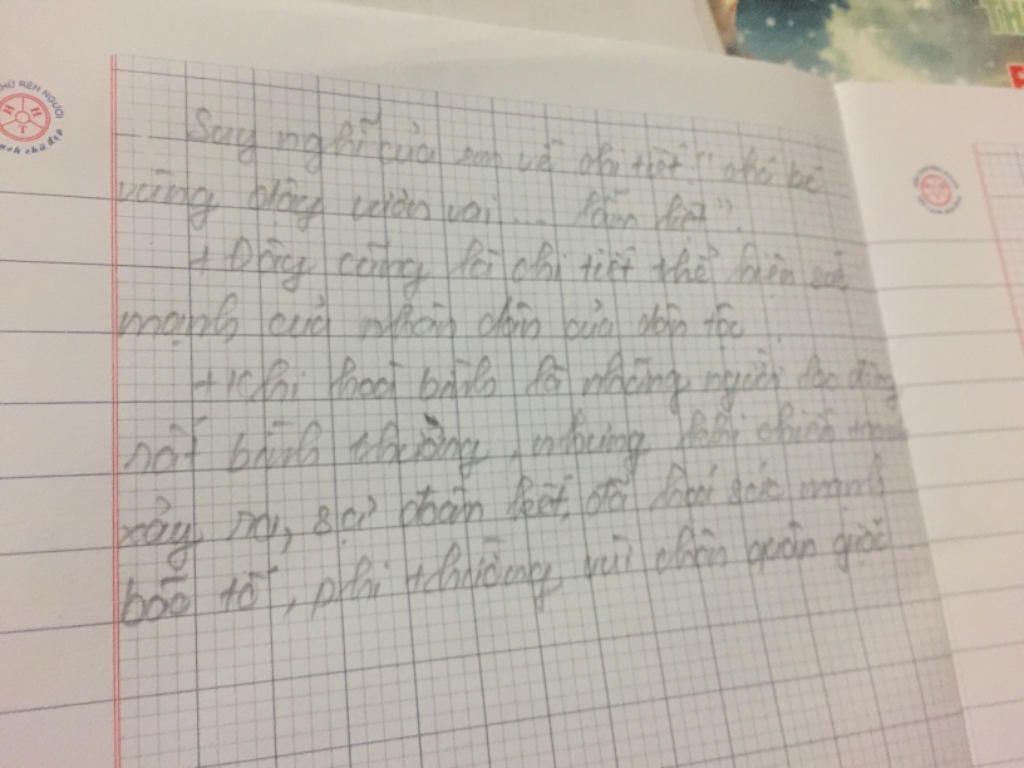 Suy nghĩ của em về chi tiết "chú bé
vùng dậy vươn vai ...
+ Đây cũng là chi tiết thể hiện sức
mạnh của nhân dân của dân tộc
+ Khi hoà bình là những người lao động
rất bình thường, nhưng khi chiến tranh
xảy ra, sự đoàn kết, đã hoá sức mạnh
bão tố, phi thường, vùi chôn quân giặc